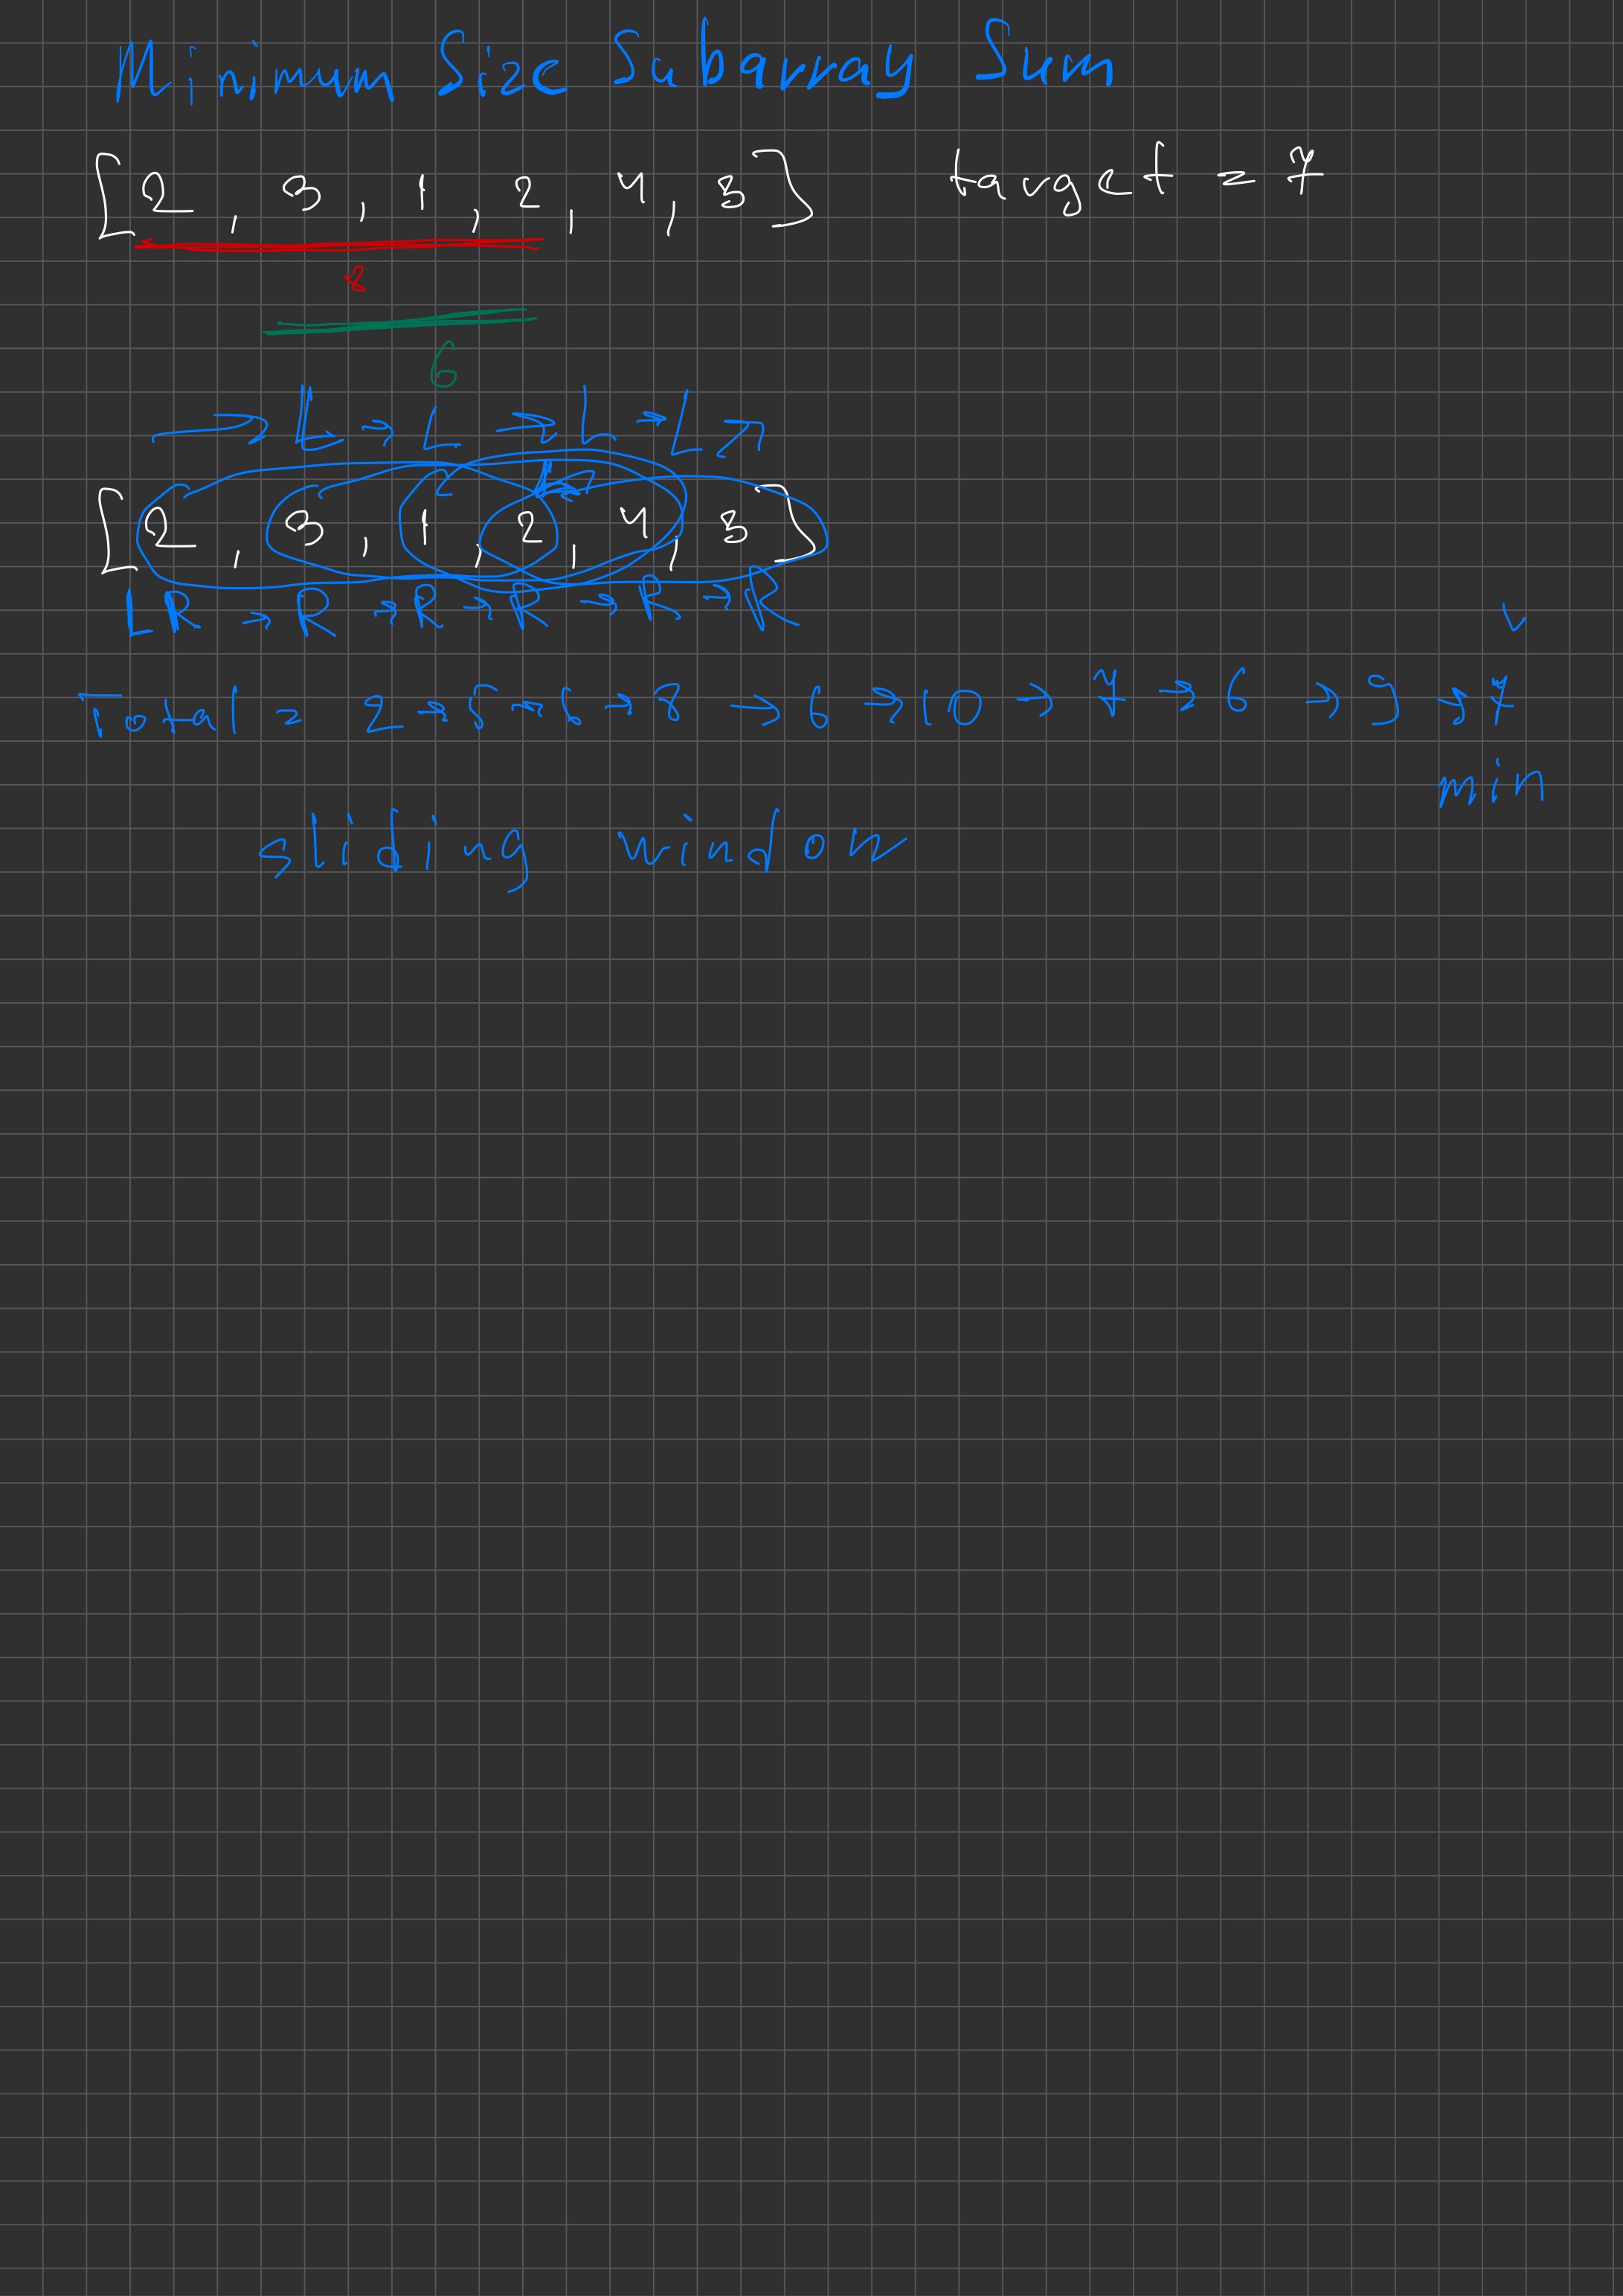 Minimum Size Subarray Sum
[2, 3, 1, 2, 4, 3] target = 7
8
6
→ L → L → L → L →
[2, 3, 1, 2, 4, 3]
L R → R → R → R → R → R
Total = 2 → 5 → 6 → 8 → 6 → 10 → 7 → 6 → 9 → 7
min
sliding window